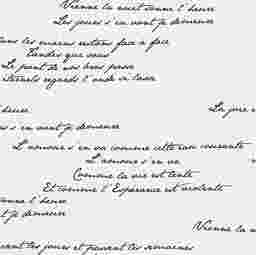 Vienne la nuit sonne l'heure
Les jours s'en vont je demeure
dans les mains restons face à face
Tandis que sous
Le pont de nos bras passe
éternels regards l'onde si lasse
heure
La joie
s'en vont je demeure
L'amour s'en va comme cette eau courante
L'amour s'en va
Comme la vie est lente
Et comme l'Espérance est violente
sonne l'heure
vont je demeure
Vienne la
les jours et passent les semaines